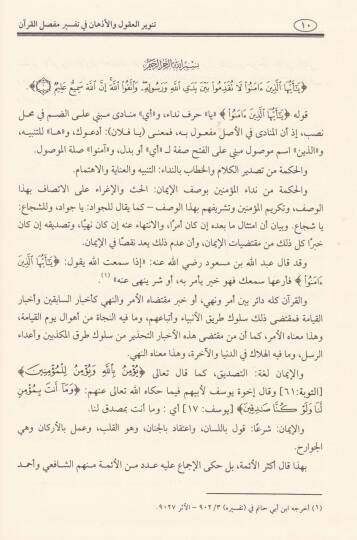 ١٠
تنوير العقول والأذهان في تفسير مفصل القرآن
بسم الله الرحمن الرحيم
﴿يَٰٓأَيُّهَا ٱلَّذِينَ ءَامَنُوا۟ لَا تُقَدِّمُوا۟ بَيْنَ يَدَىِ ٱللَّهِ وَرَسُولِهِۦ وَٱتَّقُوا۟ ٱللَّهَ إِنَّ ٱللَّهَ سَمِيعٌ عَلِيمٌ ۝﴾.
قوله ﴿يَٰٓأَيُّهَا ٱلَّذِينَ ءَامَنُوا۟﴾ «يا» حرف نداء، و«أي» منادى مبني على الضم في محل
نصب، إذ أن المنادى في الأصل مفعول به، فمعنى (يا فلان): أدعوك، و«ها» للتنبيه،
و«الذين» اسم موصول مبني على الفتح صفة لـ «أي» أو بدل، و«آمنوا» صلة الموصول.
والحكمة من تصدير الكلام والخطاب بالنداء: التنبيه والعناية والاهتمام.
والحكمة من نداء المؤمنين بوصف الإيمان: الحث والإغراء على الاتصاف بهذا
الوصف، وتكريم المؤمنين وتشريفهم بهذا الوصف – كما يقال للجواد: يا جواد، وللشجاع:
يا شجاع. وبيان أن امتثال ما بعده إن كان أمرًا، والانتهاء عنه إن كان نهيًا، وتصديقه إن كان
خبرًا كل ذلك من مقتضيات الإيمان، وأن عدم ذلك يعد نقصًا في الإيمان.
وقد قال عبد الله بن مسعود رضي الله عنه: «إذا سمعت الله يقول: ﴿يَٰٓأَيُّهَا ٱلَّذِينَ
ءَامَنُوا۟﴾ فأرعها سمعك فهو خير يأمر به، أو شر ينهى عنه» (١).
والقرآن كله دائر بين أمر ونهي، أو خبر مقتضاه الأمر والنهي كأخبار السابقين وأخبار
القيامة فمقتضى ذلك سلوك طريق الأنبياء وأتباعهم، وما فيه النجاة من أهوال يوم القيامة،
وهذا معناه الأمر، كما أن من مقتضى هذه الأخبار التحذير من سلوك طرق المكذبين وأعداء
الرسل، وما فيه الهلاك في الدنيا والآخرة، وهذا معناه النهي.
والإيمان لغة: التصديق، كما قال تعالى ﴿يُؤْمِنُ بِٱللَّهِ وَيُؤْمِنُ لِلْمُؤْمِنِينَ﴾
[التوبة: ٦١] وقال إخوة يوسف لأبيهم فيما حكاه الله تعالى عنهم: ﴿وَمَآ أَنتَ بِمُؤْمِنٍ
لَّنَا وَلَوْ كُنَّا صَٰدِقِينَ﴾ [يوسف: ١٧] أي : وما أنت بمصدق لنا.
والإيمان: شرعًا: قول باللسان، واعتقاد بالجنان، وهو القلب، وعمل بالأركان وهي
الجوارح.
بهذا قال أكثر الأئمة، بل حكى الإجماع عليه عدد من الأئمة منهم الشافعي وأحمد
(١) أخرجه ابن أبي حاتم في (تفسيره) ٩٠٢/٣ – الأثر ٩٠٢٧.